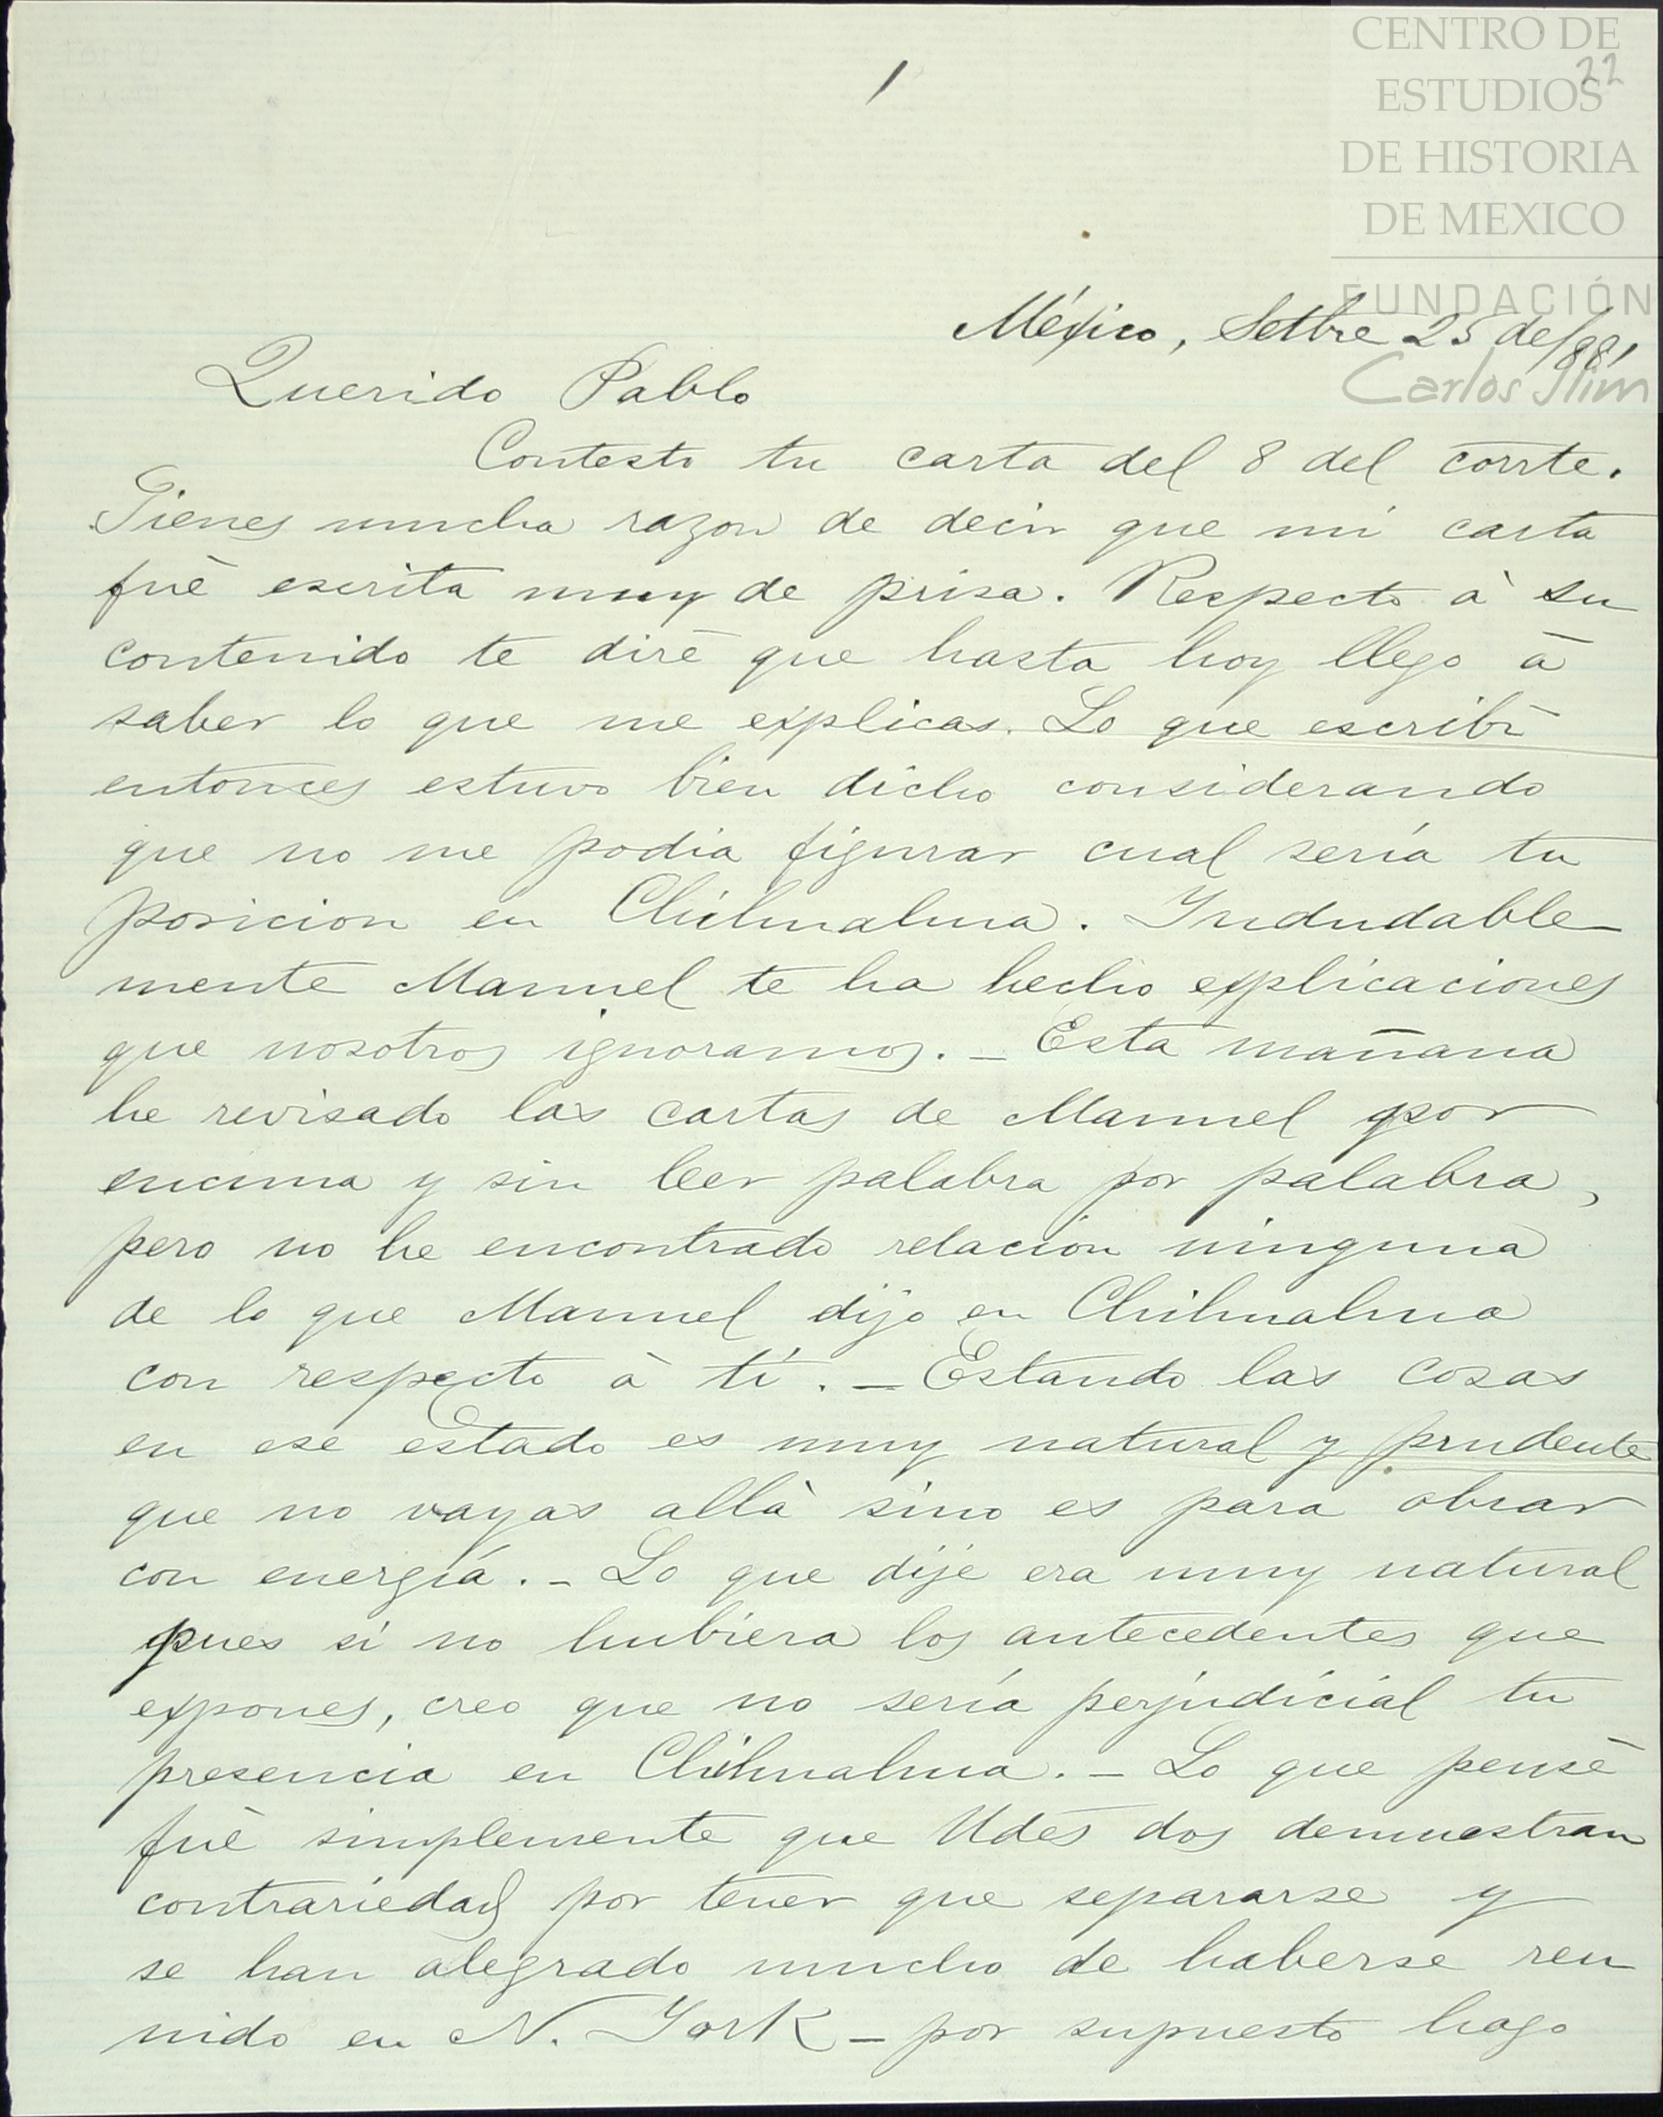 CENTRO DE
22
ESTUDIOS
DE HISTORIA
DE MEXICO
FUNDACIÓN
Carlos Slim
1
México, Setbre 25 de/88,
Querido Pablo
Contesto tu carta del 8 del corrte.
Tienes mucha razon de decir que mi carta
fué escrita muy de prisa. Respecto à su
contenido te diré que hasta hoy llego à
saber lo que me explicas. Lo que escribì
entonces estuvo bien dicho considerando
que no me podia figurar cual sería tu
posicion en Chihuahua. Indudable-
mente Manuel te ha hecho explicaciones
que nosotros ignoramos. - Esta mañana
he revisado las cartas de Manuel por
encima y sin leer palabra por palabra,
pero no he encontrado relacion ninguna
de lo que Manuel dijo en Chihuahua
con respecto à tí. - Estando las cosas
en ese estado es muy natural y prudente
que no vayas allà sino es para obrar
con energía. - Lo que dije era muy natural
pues si no hubiera los antecedentes que
expones, creo que no sería perjudicial tu
presencia en Chihuahua. - Lo que pensé
fué simplemente que Udes dos demuestran
contrariedad por tener que separarse y
se han alegrado mucho de haberse reu
nido en N. York - por supuesto hago